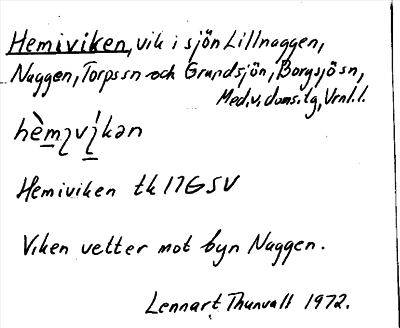 Hemiviken, vik i sjön Lillnaggen,
Naggen, Torpssn och Grundsjön, Borgsjö sn,
Med. v. doms. tg, Vrnl. l.
hèm̲ɩví̲kən
Hemiviken tk 17G SV
Viken vetter mot byn Naggen.
Lennart Thunvall 1972.